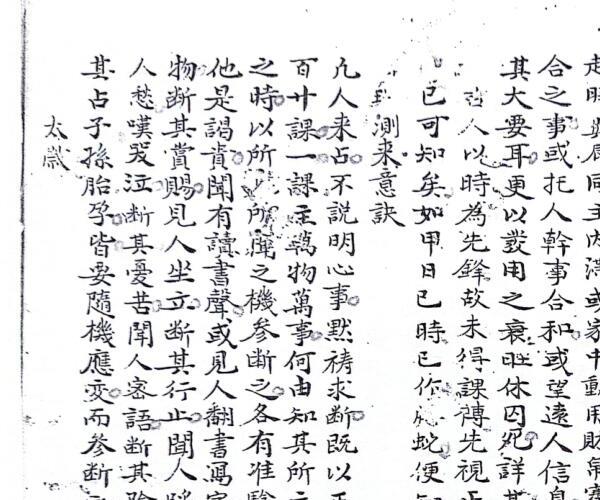 同主內或家中動用財
合之事或托人幹事合和或望遠人信
其大要耳更以發用之衰旺休囚死詳其
人以時為先鋒故未得課傳先視
已可知矣如甲日巳時巳作蛇便
測來意訣
凡人來占不說明心事默禱求斷既以
百廿課一課主萬物萬事何由知其所
之時以所所聞之機參斷之各有准驗
他是謁貴聞有讀書聲或見人翻書寫
物斷其賞賜見人坐立斷其行止聞人
人愁嘆哭泣斷其憂苦聞人密語斷其
其占子孫胎孕皆要隨機應変而參斷
太歲